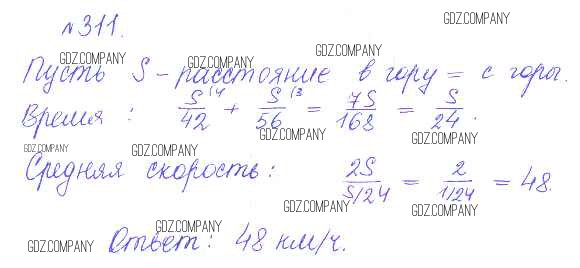 №311.
GDZ.COMPANY
GDZ.COMPANY GDZ.COMPANY GDZ.COMPANY
Пусть S - расстояние в гору = с горы.
GDZ.COMPANY GDZ.COMPANY
Время: S/42 (4 + S/56 (3 = 7S/168 = S/24.
GDZ.COMPANY
GDZ.COMPANY GDZ.COMPANY
Средняя скорость: 2S/S/24 = 2/1/24 = 48.
GDZ.COMPANY GDZ.COMPANY
GDZ.COMPANY GDZ.COMPANY
Ответ: 48 км/ч.